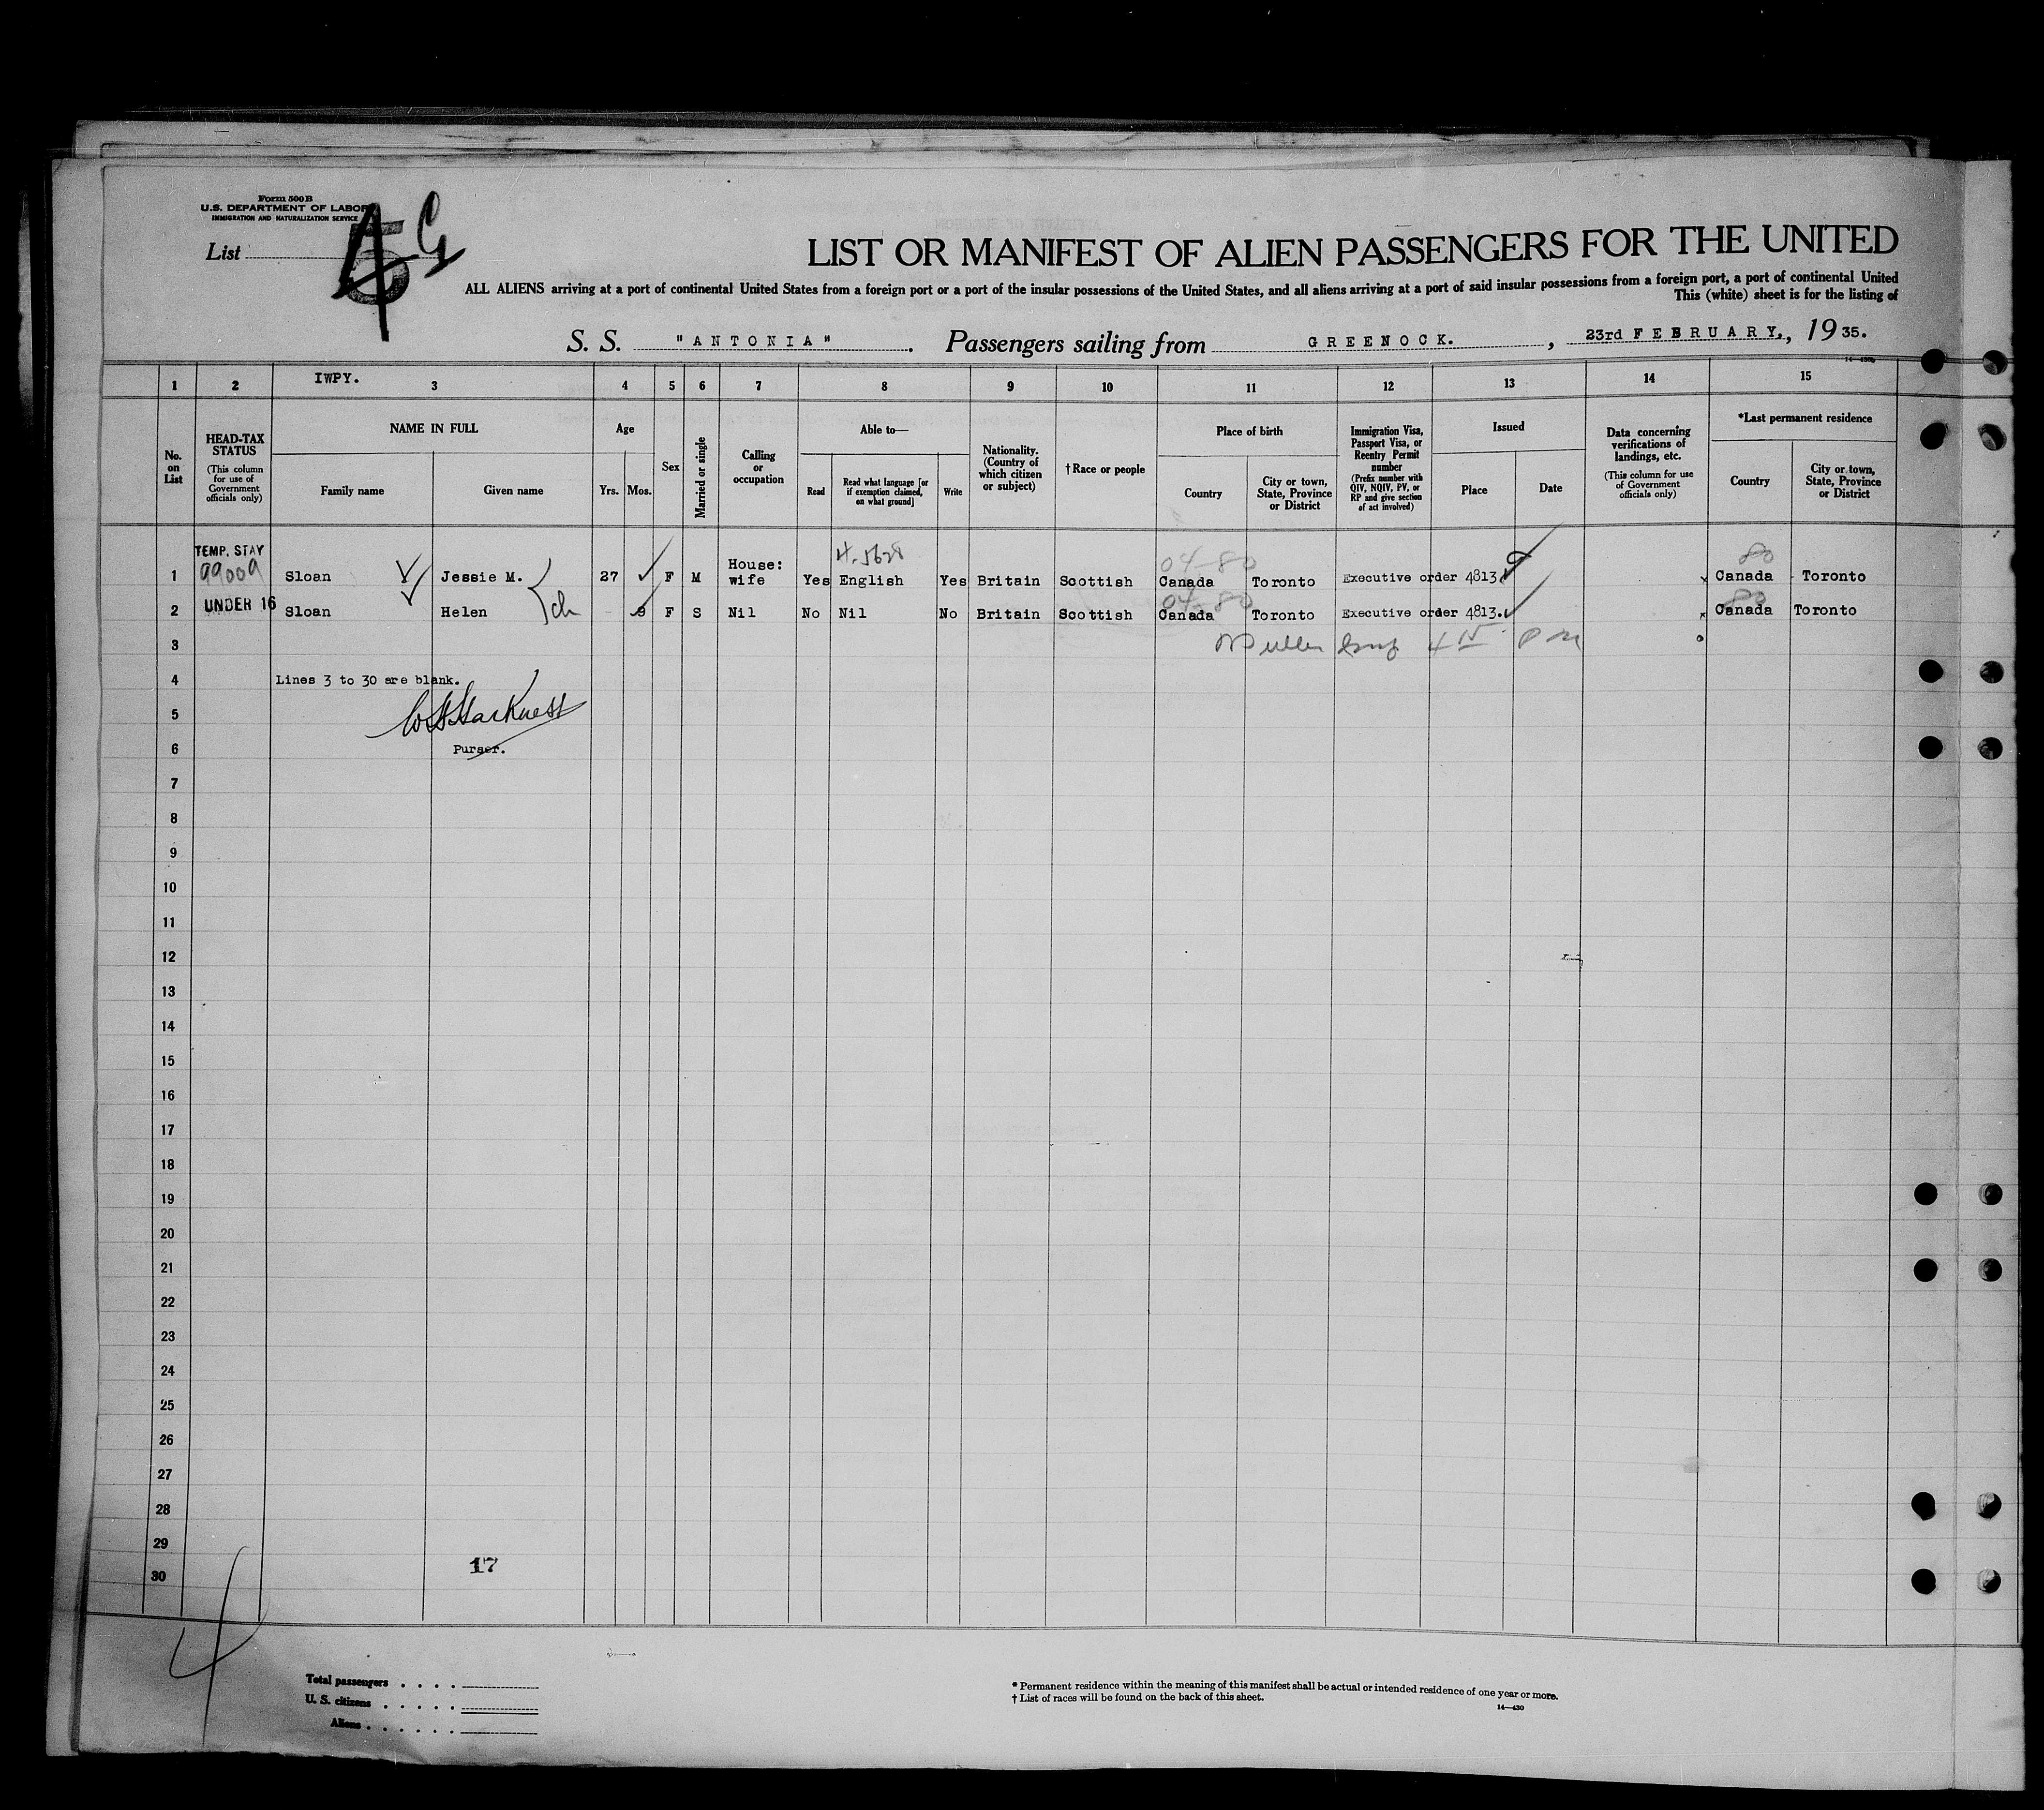 Form 500 B
U.S. DEPARTMENT OF LABOR
IMMIGRATION AND NATURALIZATION SERVICE
List
5
A G
LIST OR MANIFEST OF ALIEN PASSENGERS FOR THE UNITED
ALL ALIENS arriving at a port of continental United States from a foreign port or a port of the insular possessions of the United States, and all aliens arriving at a port of said insular possessions from a foreign port, a port of continental United
This (white) sheet is for the listing of
S. S. "ANTONIA". Passengers sailing from GREENOCK. , 23rd FEBRUARY., 1935.
1 2 IWPY. 3 4 5 6 7 8 9 10 11 12 13 14 15
No. on List
HEAD-TAX STATUS
(This column for use of Government officials only)
NAME IN FULL
Family name Given name
Age
Yrs. Mos.
Sex
Married or single
Calling or occupation
Able to—
Read
Read what language [or if exemption claimed, on what ground]
Write
Nationality. (Country of which citizen or subject)
†Race or people
Place of birth
Country
City or town, State, Province or District
Immigration Visa, Passport Visa, or Reentry Permit number
(Prefix number with QIV, NQIV, PV, or RP and give section of act involved)
Issued
Place Date
Data concerning verifications of landings, etc.
(This column for use of Government officials only)
*Last permanent residence
Country
City or town, State, Province or District
TEMP. STAY
04-80 80
1 99009 Sloan Jessie M. 27 F M House: wife Yes English Yes Britain Scottish Canada Toronto Executive order 4813. Canada Toronto
UNDER 16
04-80 80
2 Sloan Helen ch 9 F S Nil No Nil No Britain Scottish Canada Toronto Executive order 4813. Canada Toronto
3
4 Lines 3 to 30 are blank.
5 Harkness
6 Purser.
7
8
9
10
11
12
13
14
15
16
17
18
19
20
21
22
23
24
25
26
27
28
29
17
30
Total passengers
U. S. citizens
Aliens
* Permanent residence within the meaning of this manifest shall be actual or intended residence of one year or more.
† List of races will be found on the back of this sheet.
14—430